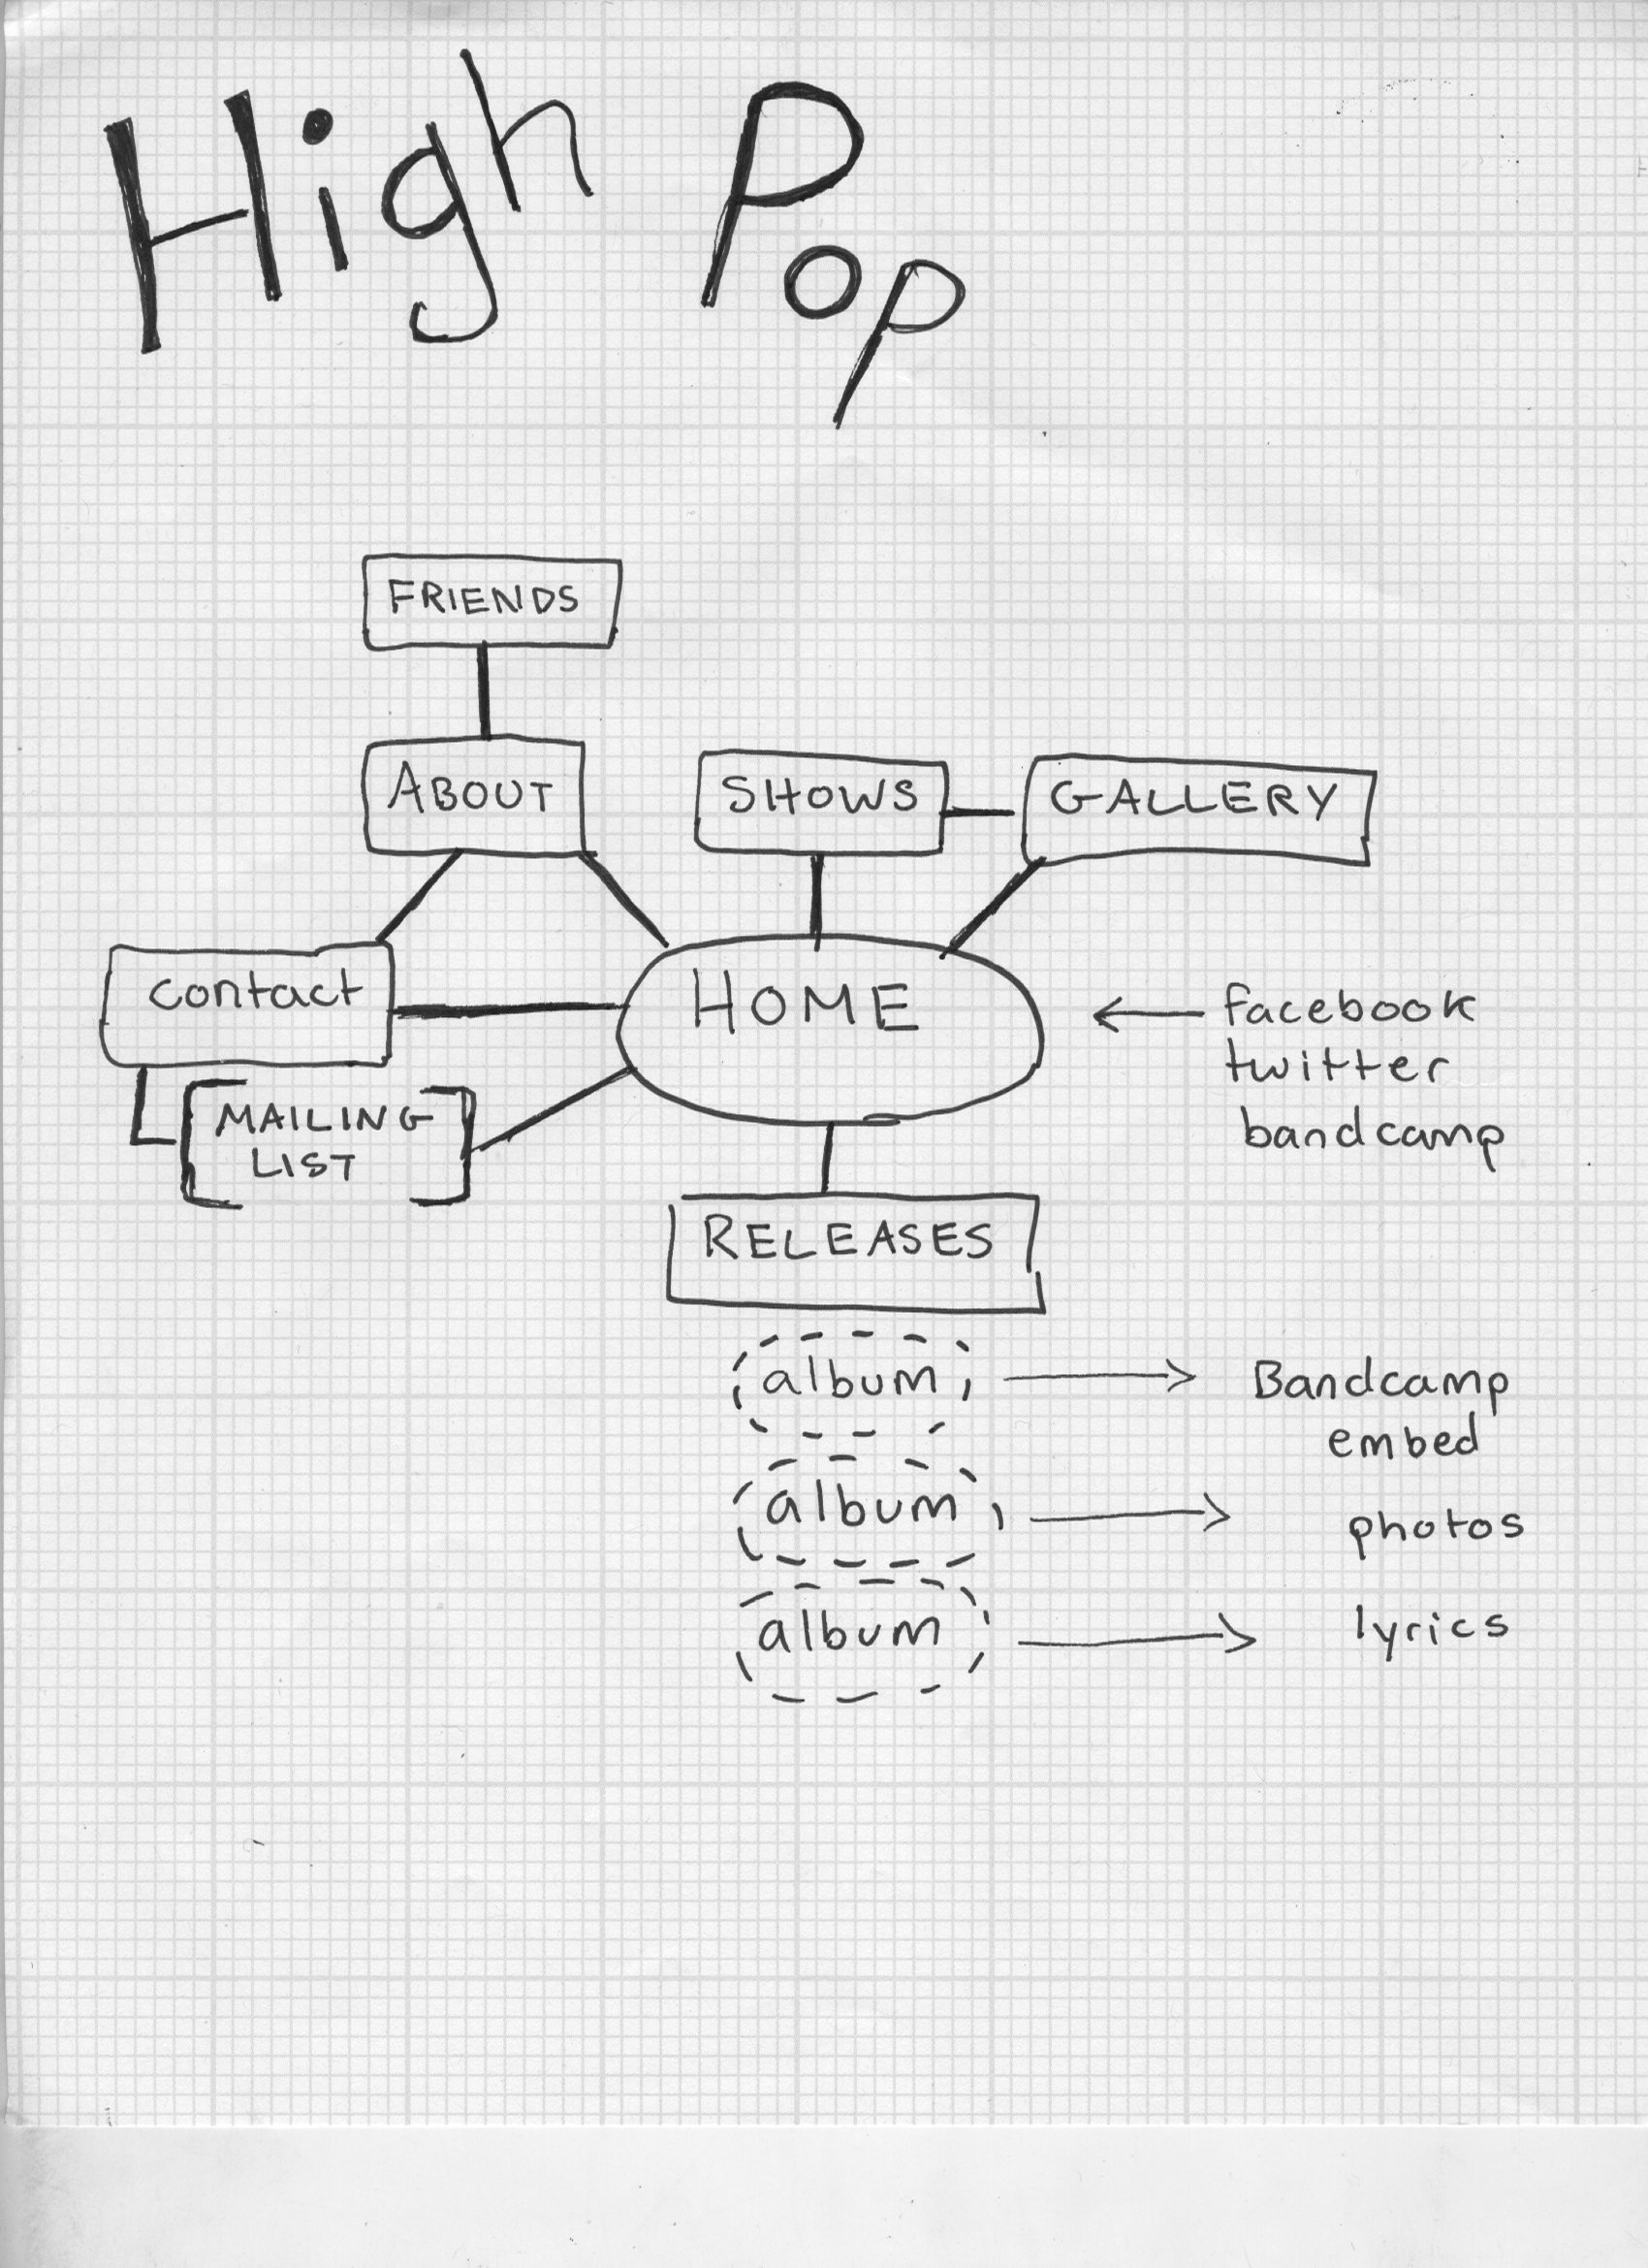 High Pop
FRIENDS
ABOUT
SHOWS
GALLERY
contact
HOME
facebook
twitter
bandcamp
MAILING
LIST
RELEASES
album
Bandcamp
embed
album
photos
album
lyrics